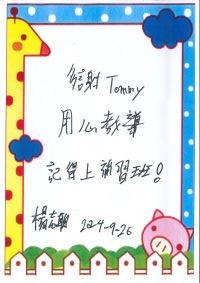 謝謝 Tommy
用心教導
記得上補習班!
楊志朗 2024-9-26